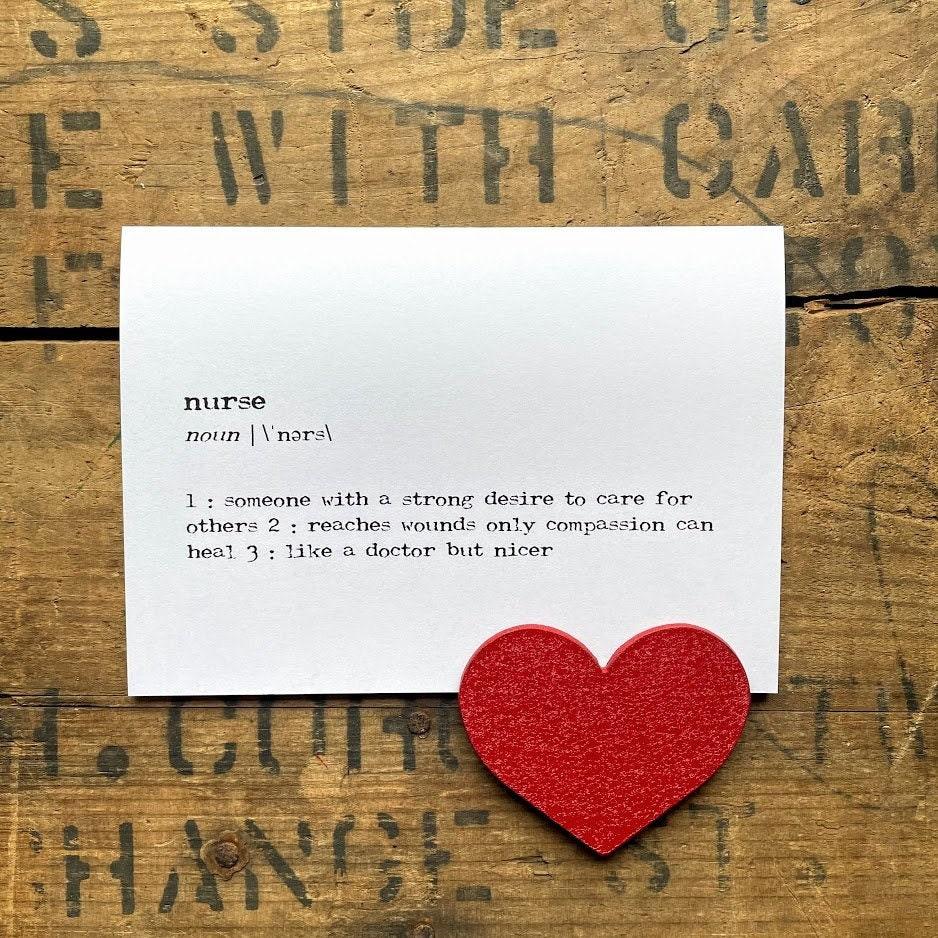 WITH
nurse
noun | \ˈnərs\
1 : someone with a strong desire to care for
others 2 : reaches wounds only compassion can
heal 3 : like a doctor but nicer